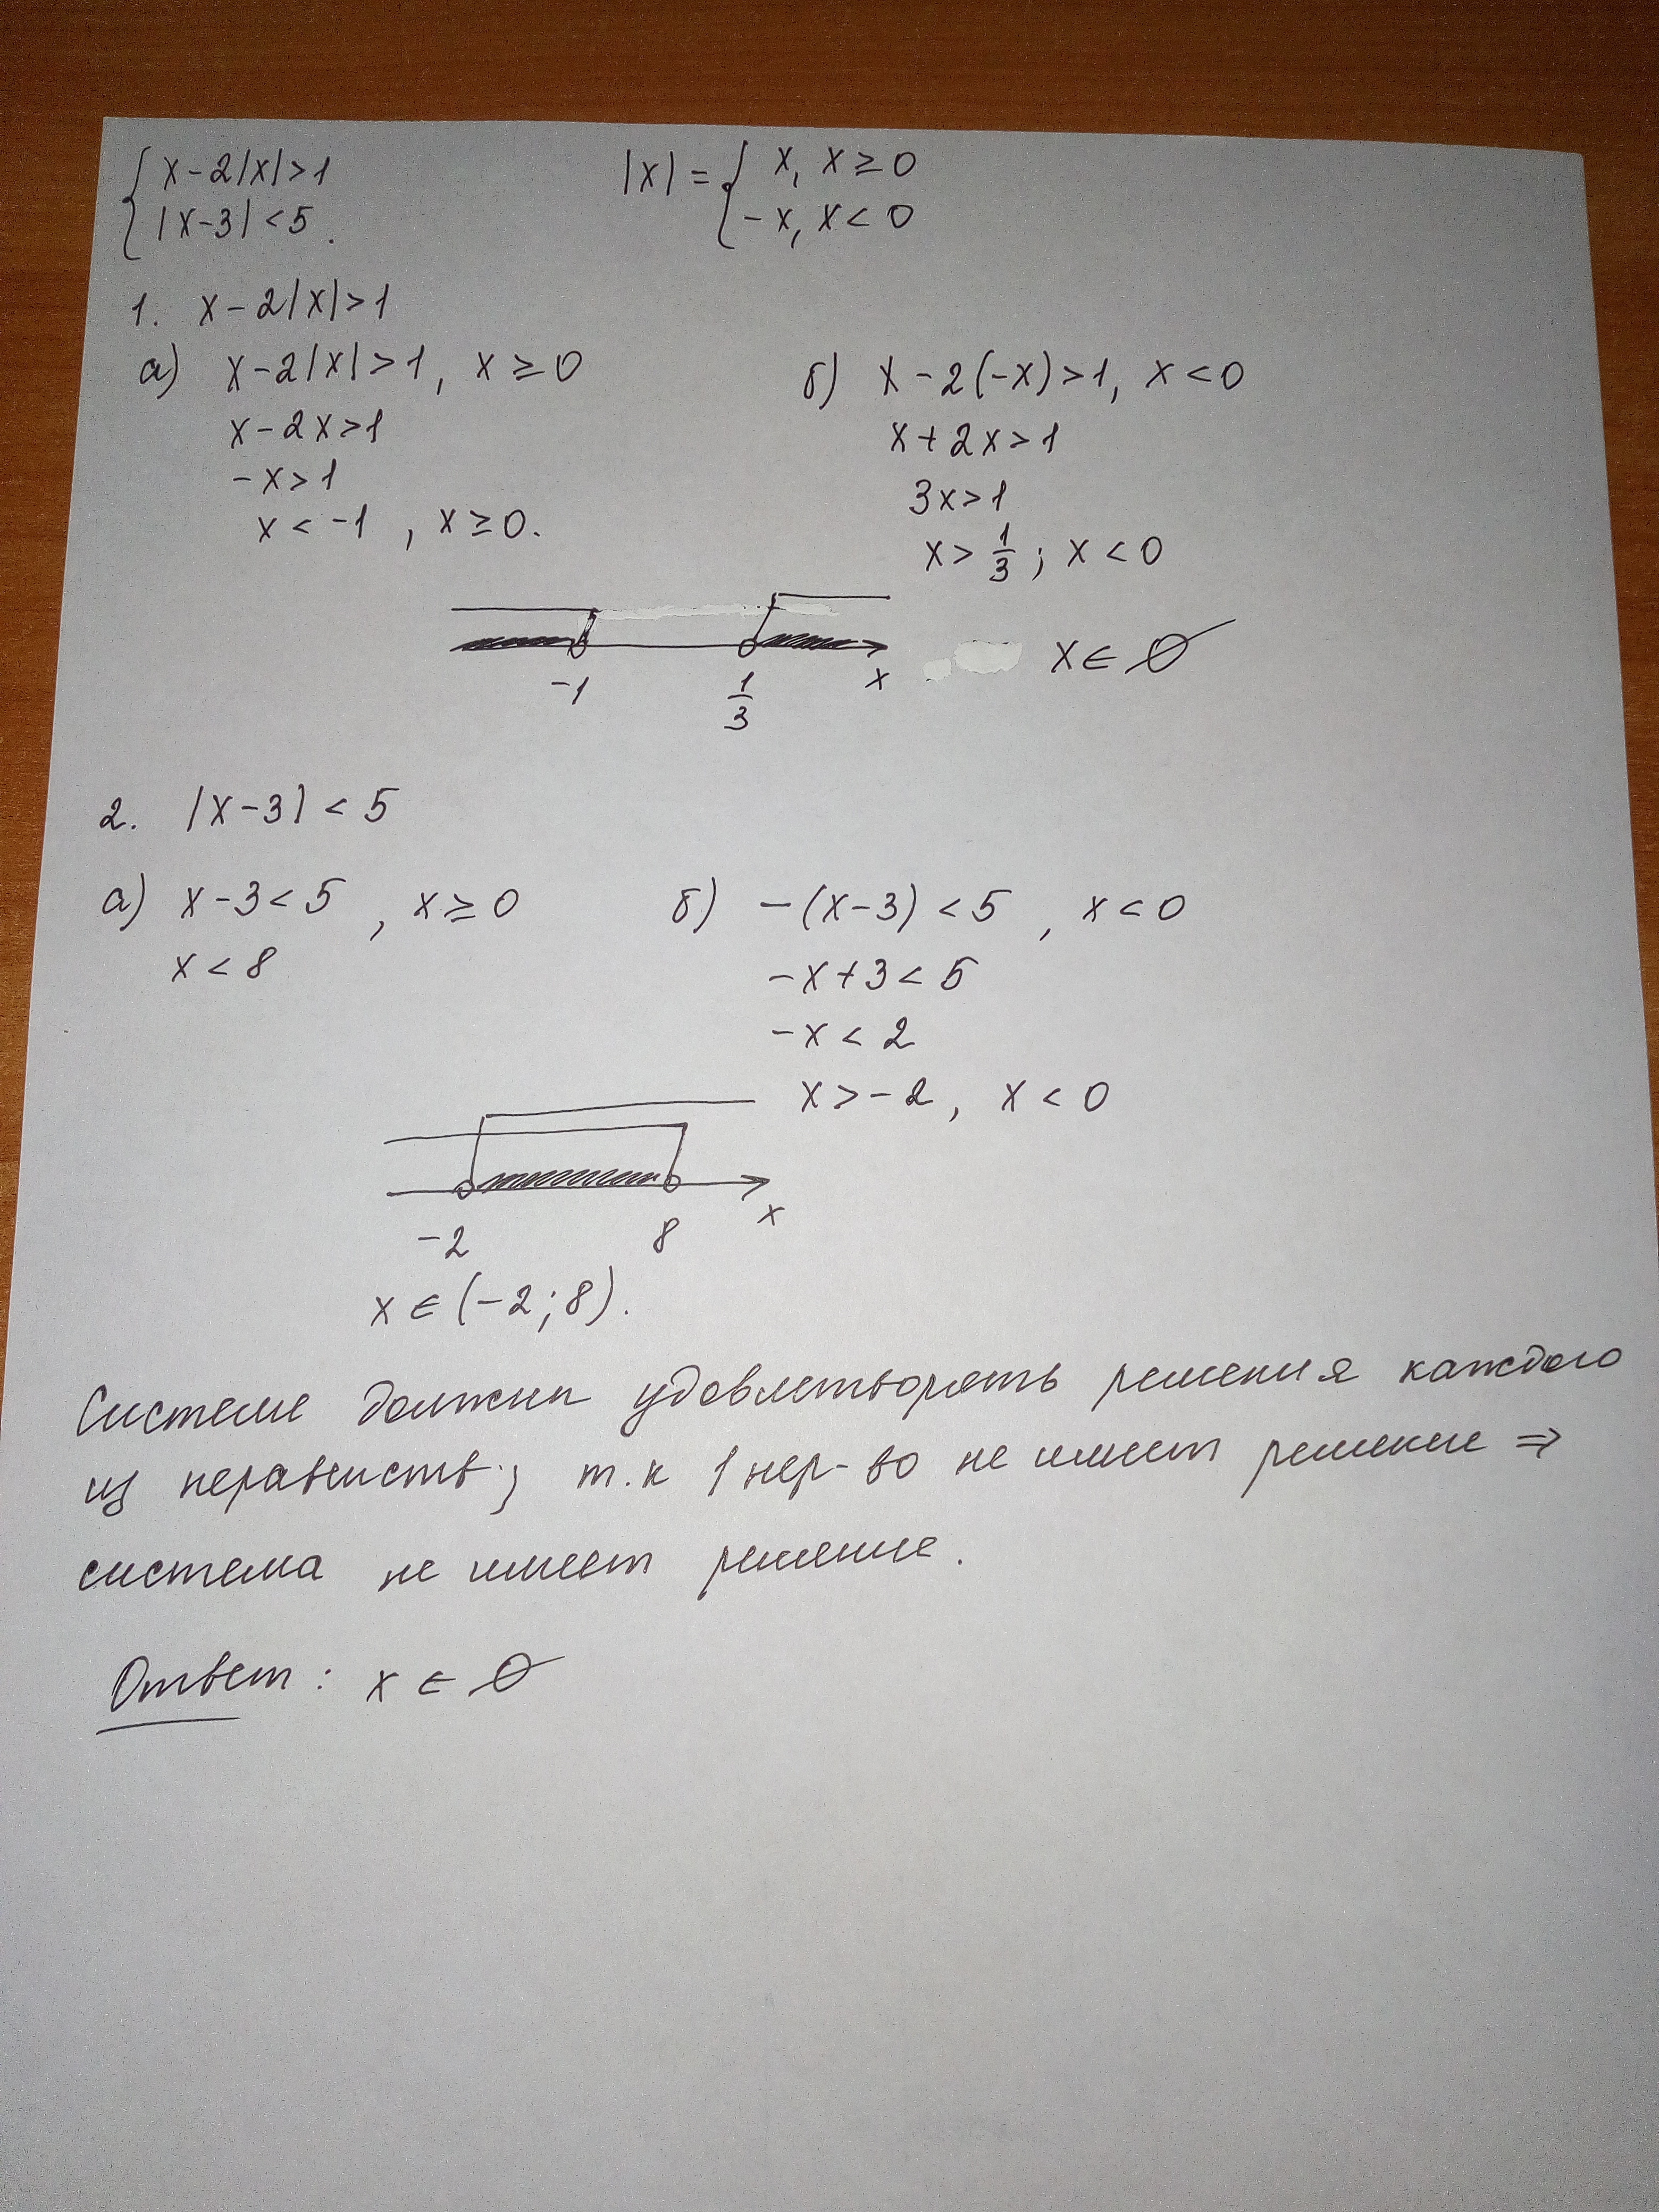 { x-2|x|>1
|x-3|<5.
|x|= { x, x≥0
-x, x<0
1. x-2|x|>1
а) x-2|x|>1, x≥0
x-2x>1
-x>1
x<-1, x≥0.
б) x-2(-x)>1, x<0
x+2x>1
3x>1
x>1/3; x<0
-1 1/3 x
x∈∅
2. |x-3|<5
а) x-3<5, x≥0
x<8
б) -(x-3)<5, x<0
-x+3<5
-x<2
x>-2, x<0
-2 8 x
x∈(-2;8).
Системе должны удовлетворять решения каждого
из неравенств; т.к 1 нер-во не имеет решение ⇒
система не имеет решение.
Ответ: x∈∅